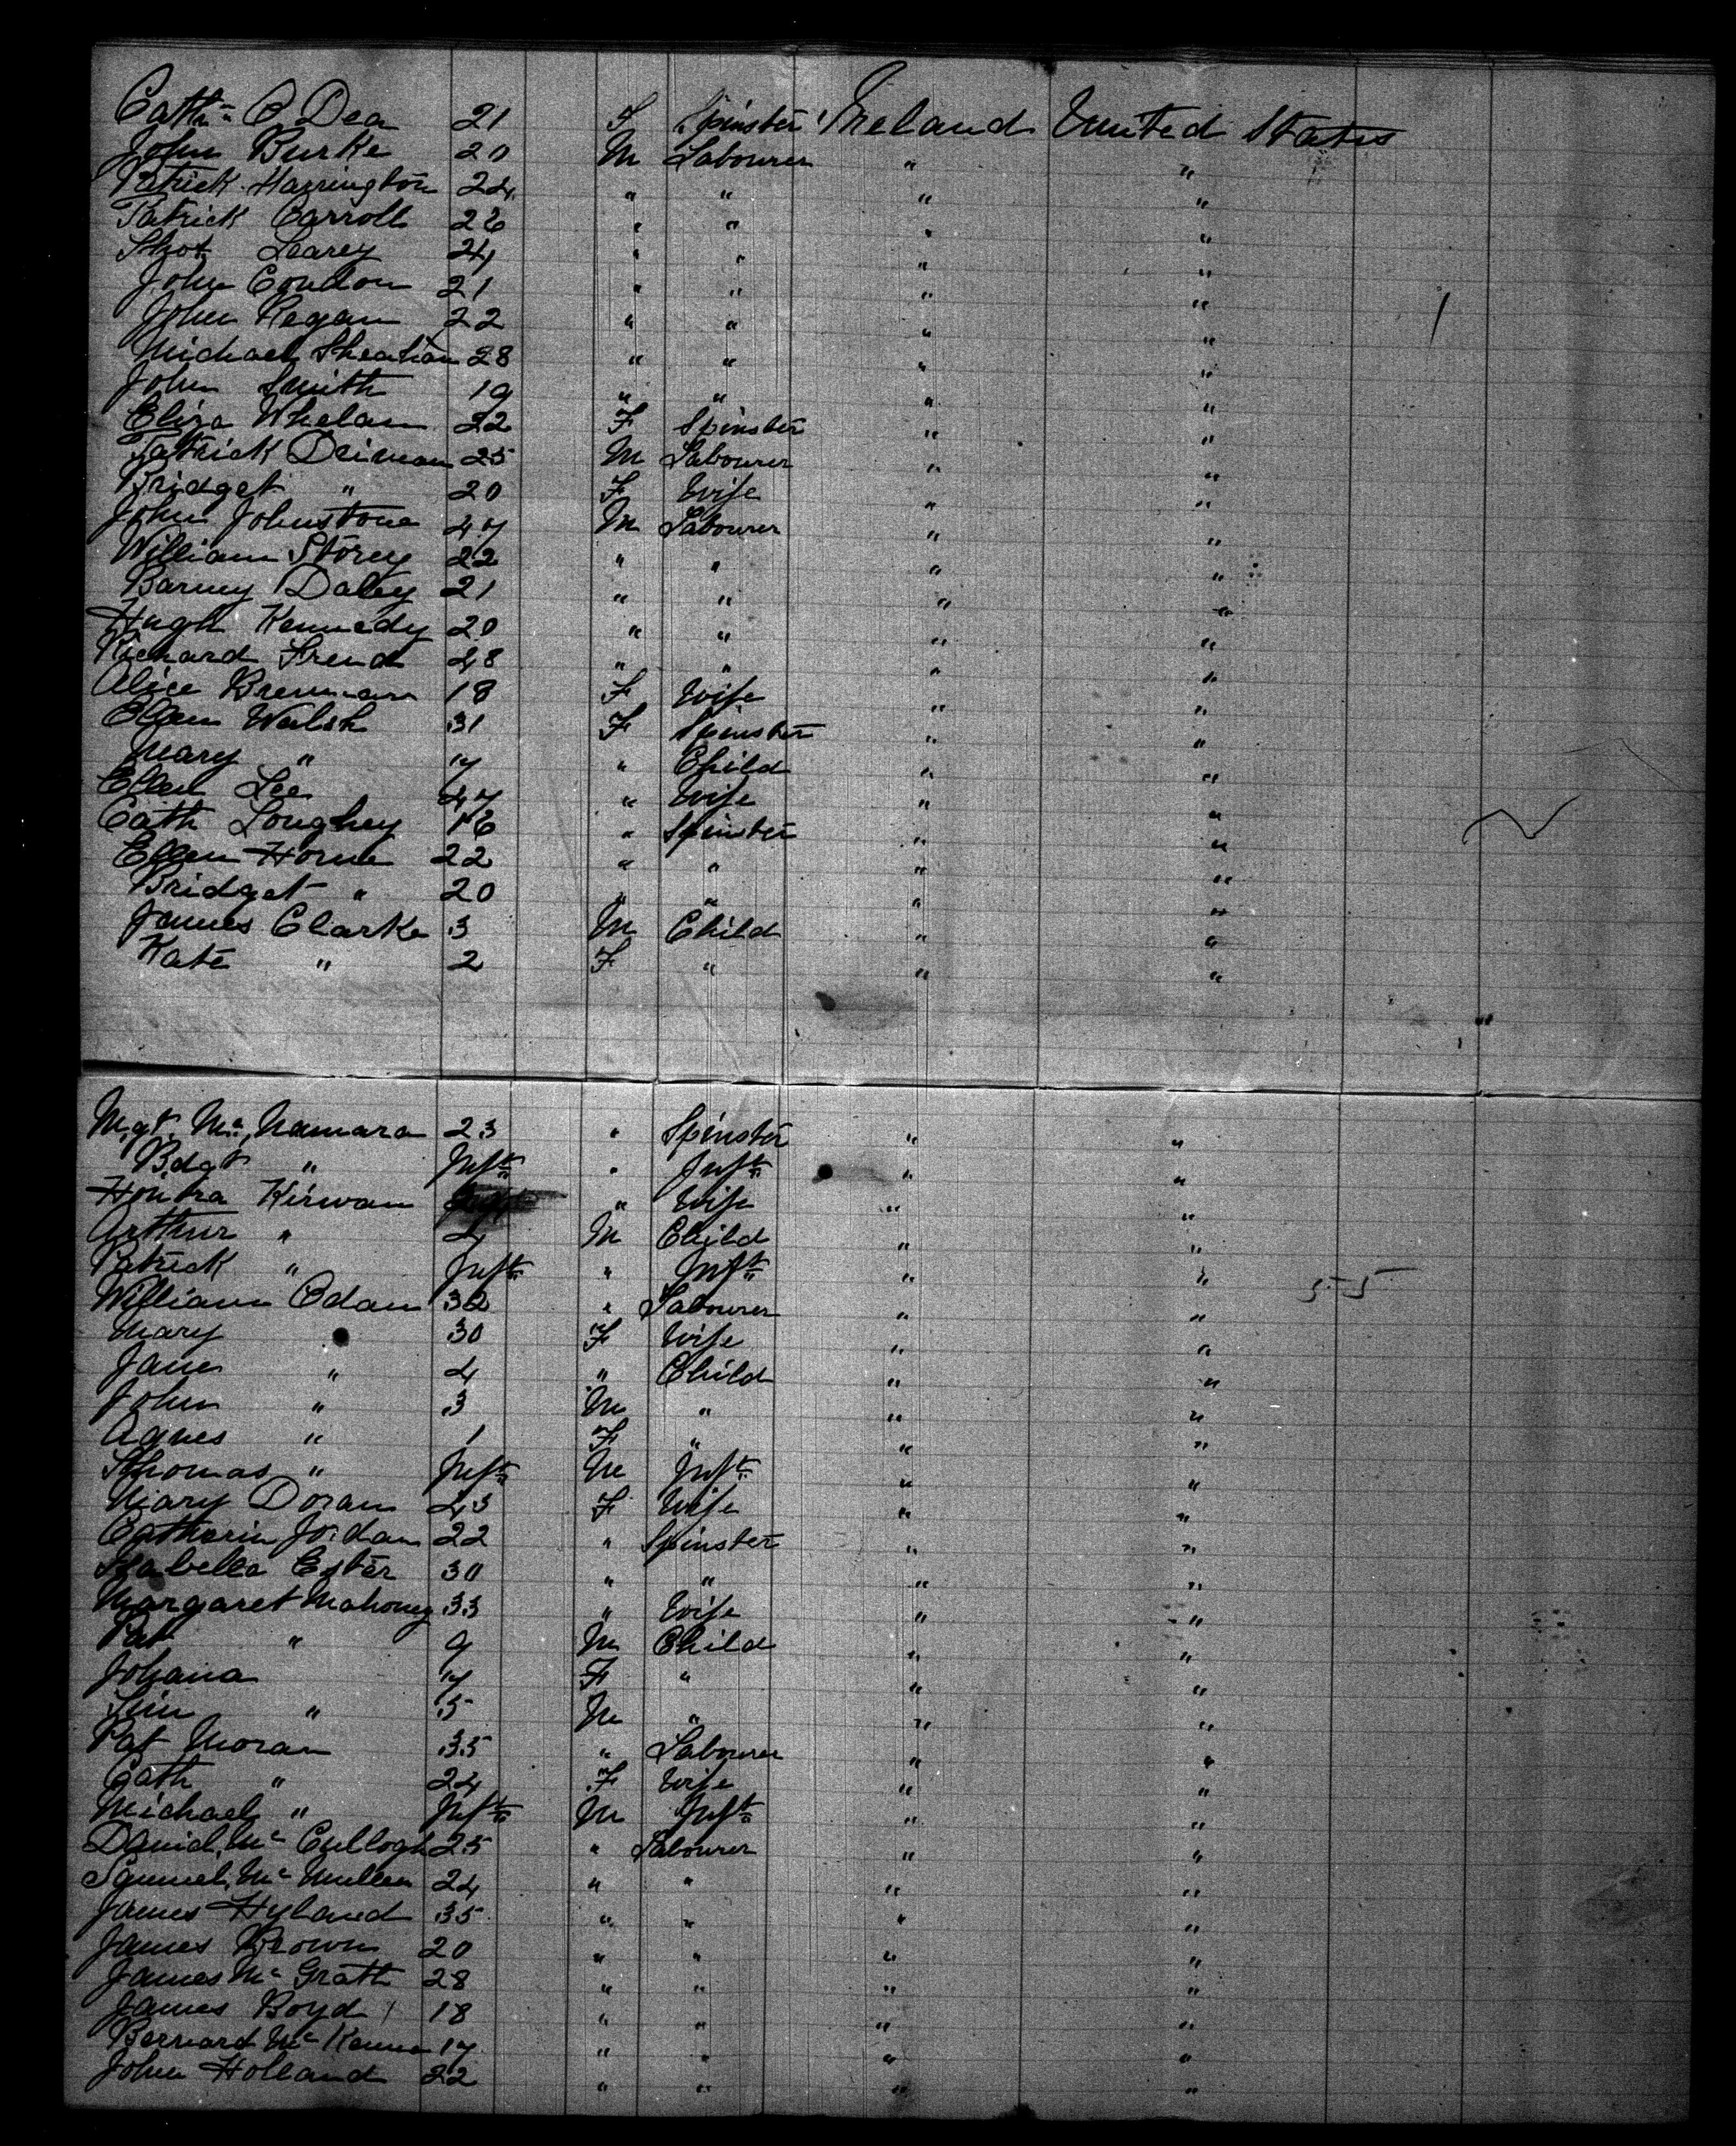 Cathn O Dea 21 F Spinster Ireland United States
John Burke 20 M Labourer " "
Patrick Harrington 24 " " " "
Patrick Carroll 26 " " " "
Thos Learey 24 " " " "
John Condon 21 " " " "
John Regan 22 " " " "
Michael Sheahan 28 " " " "
John Smith 19 " " " "
Eliza Whelan 22 F Spinster " "
Patrick 25 M Labourer " "
Bridget " 20 F Wife " "
John Johnstone 47 M Labourer " "
William Storey 22 " " " "
Barney Daley 21 " " " "
Hugh Kennedy 20 " " " "
Richard 48 " " " "
Alice Brennan 18 F Wife " "
Ellen Walsh 31 F Spinster " "
Mary " 7 " Child " "
Ellen Lee 47 " Wife " "
Cath Loughey 16 " Spinster " "
Ellen Horne 22 " " " "
Bridget " 20 " " " "
James Clarke 3 M Child " "
Kate " 2 F " " "
Mgt. Mc. Namara 23 " Spinster " "
Bdgt " Inft " Inft " "
Honora Kirwan " Wife " "
Arthur " M Child " "
Patrick " Inft " Inft " "
William Odam 32 " Labourer " "
Mary " 30 F Wife " "
Jane " 4 " Child " "
John " 3 M " " "
Agnes " 1 F " " "
Thomas " Inft M Inft " "
Mary Doran 43 F Wife " "
Catherin Jordan 22 " Spinster " "
Isabella Ester 30 " " " "
Margaret Mahoney 33 " Wife " "
Pat " 9 M Child " "
Johana 7 F " " "
Tim " 5 M " " "
Pat Moran 35 " Labourer " "
Cath " 24 F Wife " "
Michael " Inft M Inft " "
Daniel Mc Cullogh 25 " Labourer " "
Samuel Mc Mullen 24 " " " "
James Hyland 35 " " " "
James Brown 20 " " " "
James Mc Grath 28 " " " "
James Boyd 18 " " " "
Bernard Mc Kenna 17 " " " "
John Holland 22 " " " "